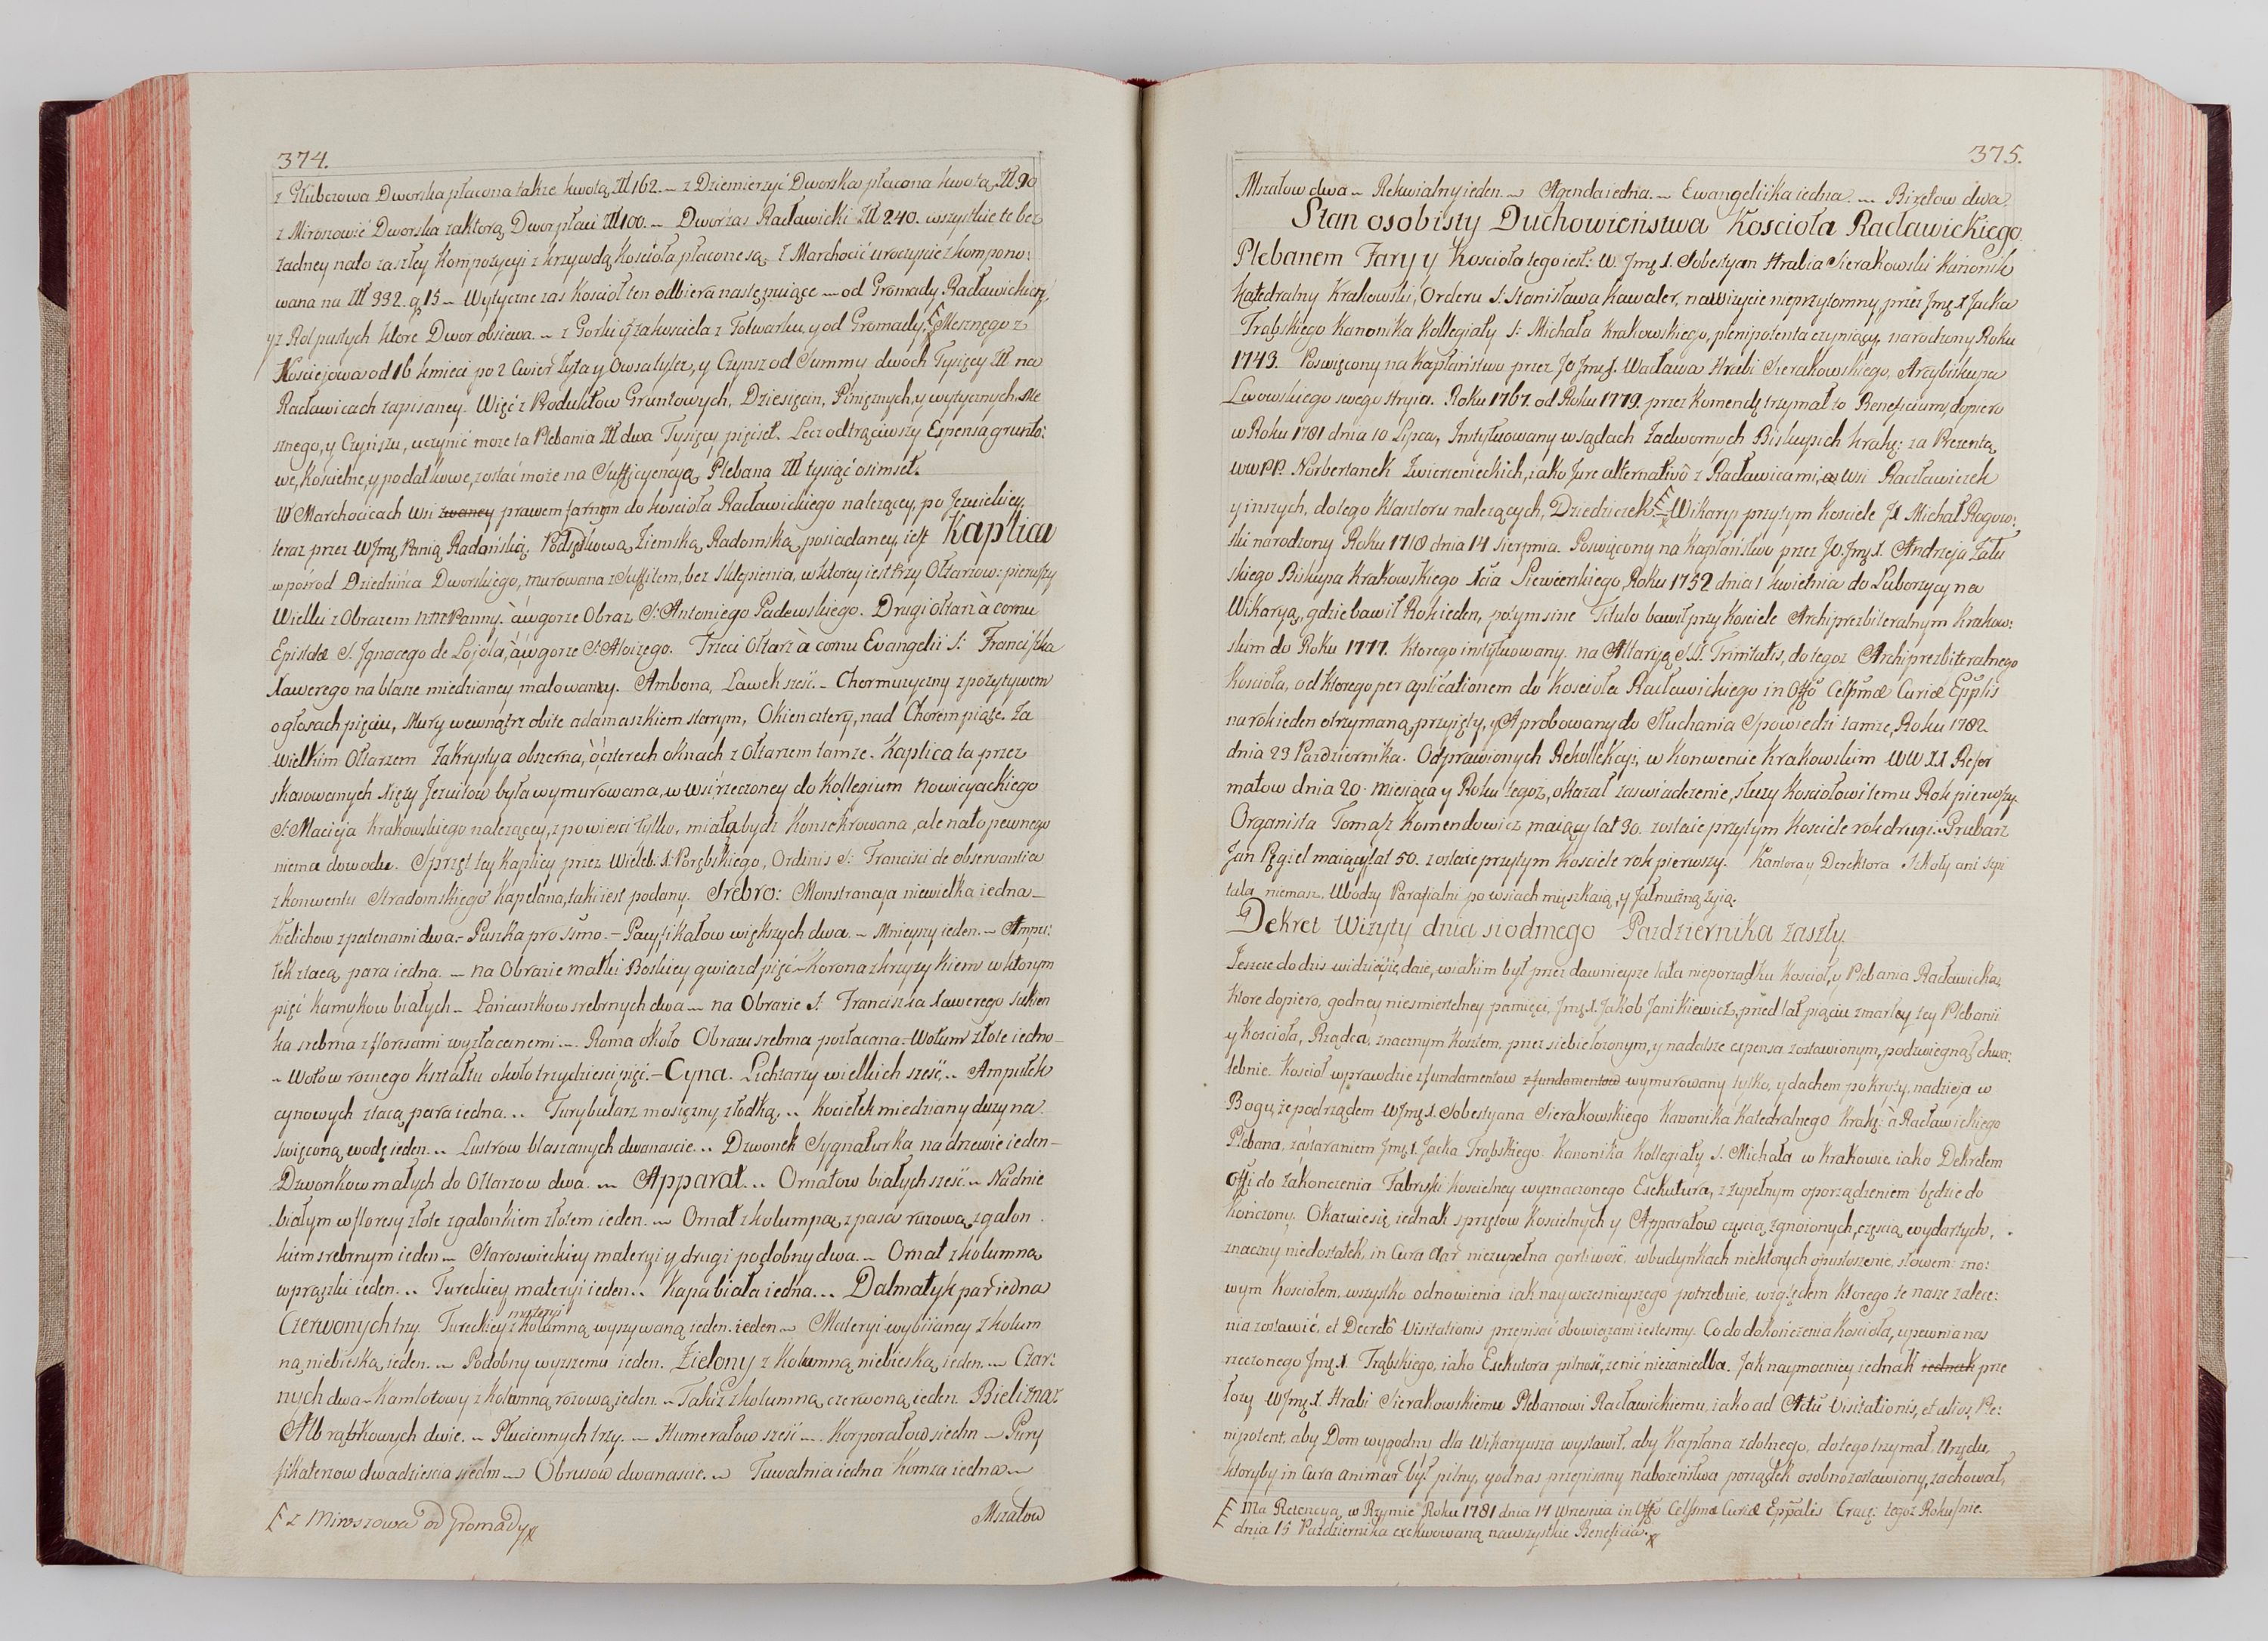 374.
z Głubczowa Dworska płacona także kwotą Zll 162. – z Dziemierzyć Dworska płacona kwotą Zll 90
z Mironowić Dworska zaktorą Dwor płaci Zll 100. – Dwor zas Racławicki Zll 240. wszystkie te bez
żadney nato zaszłey Kompozycyi z krzywdą Koscioła płacone są. Z Marchocić uroczyscie zkompono:
wana na Zll 332. g 15 – Wytyczne zas Kosciół ten odbiera następuiące – od Gromady Racławickiey
yz Rol pustych ktore Dwor obsiewa. – z Gorki y zakosciela z Folwarku, y od Gromady, Mesznego z
Kosciejowa od 16 kmieci po 2 Cwierć Żyta y Owsa tyleż, y Czynsz od Summy dwoch Tysięcy Zll na
Racławicach zapisaney. Więc z Produktow Gruntowych, Dziesięcin, Piniężnych, y wytycznych, Me
sznego, y Czynszu, uczynić może ta Plebania Zll dwa Tysięcy pięćset. Lecz odtrąciwszy Expensa grunto:
we, Koscielne, y podatkowe, zostać może na Sufficyencyą Plebana Zll tysiąc osimset.
W Marchocicach Wsi zwaney prawem farnym do koscioła Racławickiego nalezącey, po Jezuickiey,
teraz przez WJmę Panią Radońską, Podsędkową Ziemską Radomską posiadaney, iest Kaplica
w pośrod Dziedzińca Dworskiego, murowana z Suffitem, bez sklepienia, w ktorey iest trzy Ołtarzow: pierwszy
Wielki z Obrazem NMPanny: à w gorze Obraz S: Antoniego Padewskiego. Drugi Ołtarz à cornu
Epistolæ S. Jgnacego de Lojola, à w gorze S: Aloizego. Trzeci Ołtarz à cornu Evangelii S: Franciszka
Xawerego na blasze miedzianey malowany. Ambona, Lawek sześć. – Chor muzyczny z pozytywem
o głosach pięciu, Mury wewnątrz obite adamaszkiem starym, Okien cztery, nad Chorem piąte. Za
wielkim Ołtarzem Zakrystya obszerna, o czterech oknach z Ołtarzem tamze. Kaplica ta przez
skasowanych Xięży Jezuitow była wymurowana, w wsi rzeczoney do Kollegium Nowicyackiego
S: Macieja Krakowskiego nalezącey, z powiesci tylko, miała bydź Konsekrowana, ale nato pewnego
niema dowodu. Sprzęt tey Kaplicy przez Wieleb. X. Porębskiego, Ordinis S: Francisci de observantia
z konwentu Stradomskiego Kapelana, taki iest podany. Srebro: Monstrancya niewielka iedna –
Kielichow z patenami dwa. – Puszka pro SSmo. – Pacyfikałow większych dwa. – Mnieyszy ieden. – Ampu:
łek z tacą para iedna. – na Obrazie Matki Boskiey gwiazd pięć – Korona z krzyżykiem w ktorym
pięć kamykow białych – Łańcuszkow srebrnych dwa – na Obrazie S. Franciszka Xawerego sukien
ka srebrna z floresami wyzłacanemi. – Rama około Obrazu srebrna pozłacana. – Wotum złote iedno –
– Wotow roznego Kształtu około trzydziesci pięć. – Cyna. Lichtarzy wielkich sześć. – Ampułek
cynowych z tacą para iedna. – Turybularz mosiężny, złodką. – Kociełek miedziany duzy na
święconą wodę ieden. – Lustrow blaszanych dwanascie. – Dzwonek Sygnaturka, na drzewie ieden –
Dzwonkow małych do Ołtarzow dwa. – Apparat. – Ornatow białych sześć. – Na dnie
białym w floresy złote z galonkiem złotem ieden. – Ornat z kolumną z pasa rużową z galon
kiem srebrnym ieden – Staroswieckiey materyi y drugi podobny dwa. – Ornat z kolumną
w prązki ieden. – Tureckiey materyi ieden. – Kapa biała iedna. – Dalmatyk par iedna
Czerwonych trzy. Tureckiey materyi z kolumną wyszywaną ieden. ieden – Materyi wybiianey z kolum
ną niebieską ieden. – Podobny wyzszemu ieden. Zielony z kolumną niebieską ieden. – Czar:
nych dwa – Kamlotowy z kolumną rózową ieden. – Takiż z kolumną czerwoną ieden. Bielizna:
Alb rąbkowych dwie. – Płuciennych trzy. – Humerałow sześć – Korporałow siedm – Pury
fikaterzow dwadziescia siedm – Obrusow dwanascie. – Tuwalnia iedna Komza iedna –
Mszałow
z Miroszowa od Gromady
375.
Mszałow dwa – Rekwialny ieden. – Agenda iedna. – Ewangeliika iedna. – Biretow dwa
Stan osobisty Duchowieństwa Koscioła Racławickiego
Plebanem Fary y Koscioła tego iest: W. Jmę X. Sobestyan Hrabia Sierakowski Kanonik
Katedralny Krakowski, Orderu S: Stanisława Kawaler, na Wizycie nieprzytomny, przez Jmę X Jacka
Trąbskiego Kanonika Kollegiaty S: Michała Krakowskiego, plenipotenta czyniący, narodzony Roku
1743. Poswięcony na Kapłaństwo przez JO Jmę X. Wacława Hrabi Sierakowskiego, Arcybiskupa
Lwowskiego swego Stryia. Roku 1767. od Roku 1779. przez Komendę trzymał to Beneficium, dopiero
w Roku 1781 dnia 10 Lipca, Instytuowany w sądach Zadwornych Biskupich krakę: za Prezentą
WWPP. Norbertanek Zwierzenieckich, iako Jure alternativô z Racławicami, wsi Racławiczek
y inszych, do tego Klasztoru nalezących, Dziedziczek. Wikary przytym Kosciele JX Michał Rogow:
ski narodzony Roku 1718 dnia 14 Sierpnia. Poswięcony na Kapłaństwo przez JO. Jmę X. Andrzeja Zału
skiego Biskupa Krakowskiego Xcia Siewierskiego, Roku 1752 dnia 1 kwietnia do Luborzycy na
Wikaryą, gdzie bawił Rok ieden, potym sine Titulo bawił przy Kosciele Archiprezbiteralnym Krakow:
skim do Roku 1777. ktorego instytuowany na Altaryą SS. Trinitatis, do tegoz Archiprezbiteralnego
Koscioła, od ktorego per aplicationem do Koscioła Racławickiego in Offo Celssmæ Curiæ Epplis
na rok ieden otrzymaną, przyięty, y Aprobowany do Słuchania Spowiedzi tamze, Roku 1782.
dnia 23 Pazdziernika. Odprawionych Rekollekcyi, w Konwencie Krakowskim WW XX Refor
matow dnia 20. Miesiąca y Roku tegoż, okazał zaswiadczenie, służy Kosciołowi temu Rok pierwszy.
Organista Tomasz Komendowicz, maiący lat 30. zostaie przytym Kosciele rok drugi. Grubarz
Jan Pęgiel maiący lat 50. zostaie przytym Kosciele rok pierwszy. Kantora y Derektora Szkoły ani szpi
tala, niemasz. Ubodzy Parafialni po wsiach mięszkaią, y Jałmużną żyią.
Dekret Wizyty dnia siodmego Pazdziernika zaszły
Jeszcze do dzis widzieć się daie, w iakim był przez dawnieysze lata nieporządku Kosciół, y Plebania Racławicka,
Ktore dopiero, godney niesmiertelney pamięci, Jmę X. Jakob Janikiewicz, przed lat pięciu zmarłey tey Plebanii
y Koscioła, Rządca, znacznym Kosztem, przez siebie łozonym, y nadalsze expensa zostawionym, podzwignął chwa:
lebnie. Kosciół wprawdzie z fundamentow z fundamentow wymurowany tylko, y dachem pokryty, nadzieja w
Bogu, że pod rządem WJmę X. Sobestyana Sierakowskiego Kanonika Katedralnego Krakę: à Racławickiego
Plebana, zástaraniem Jmę X. Jacka Trąbskiego Kanonika Kollegiaty S. Michała w Krakowie iako Dekretem
Offi do zakonczenia Fabryki Koscielney wyznaczonego Exekutora, z zupełnym oporządzeniem będzie do
kończony. Okazuie się iednak sprzętow Koscielnych y Apparatow częścią zgnoionych, częścią wydartych,
znaczny niedostatek, in Cura Aar niezupełna gorliwość, w budynkach niektorych opustoszenie, słowem zno:
wym Kosciołem, wszystko odnowienia iak naywczesnieyszego potrzebuie, względem ktorego te nasze zalece:
nia zostawić, et Decretô Visitationis przepisać obowiązani iestesmy. Co do dokończenia Koscioła, upewnia nas
rzeczonego Jmę X. Trąbskiego, iako Exekutora pilność, ze nić niezaniedba. Jak naymocniey iednak iednak prze
łozy WJmę X. Hrabi Sierakowskiemu Plebanowi Racławickiemu, iako ad Actū Visitationis, et alios, Ple:
nipotent, aby Dom wygodny dla Wikaryusza wystawił, aby Kapłana zdolnego, do tego trzymał, Urzędu,
ktoryby in Cura animar był pilny, y od nas przepisany nabożeństwa porządek osobno zostawiony, zachował,
Ma Retencyą w Rzymie Roku 1781 dnia 14 Wrzesnia in Offo Celssmæ Curiæ Eppalis Cracę: tegoz Roku
dnia 15 Pazdziernika exekwowaną na wszystkie Beneficia.